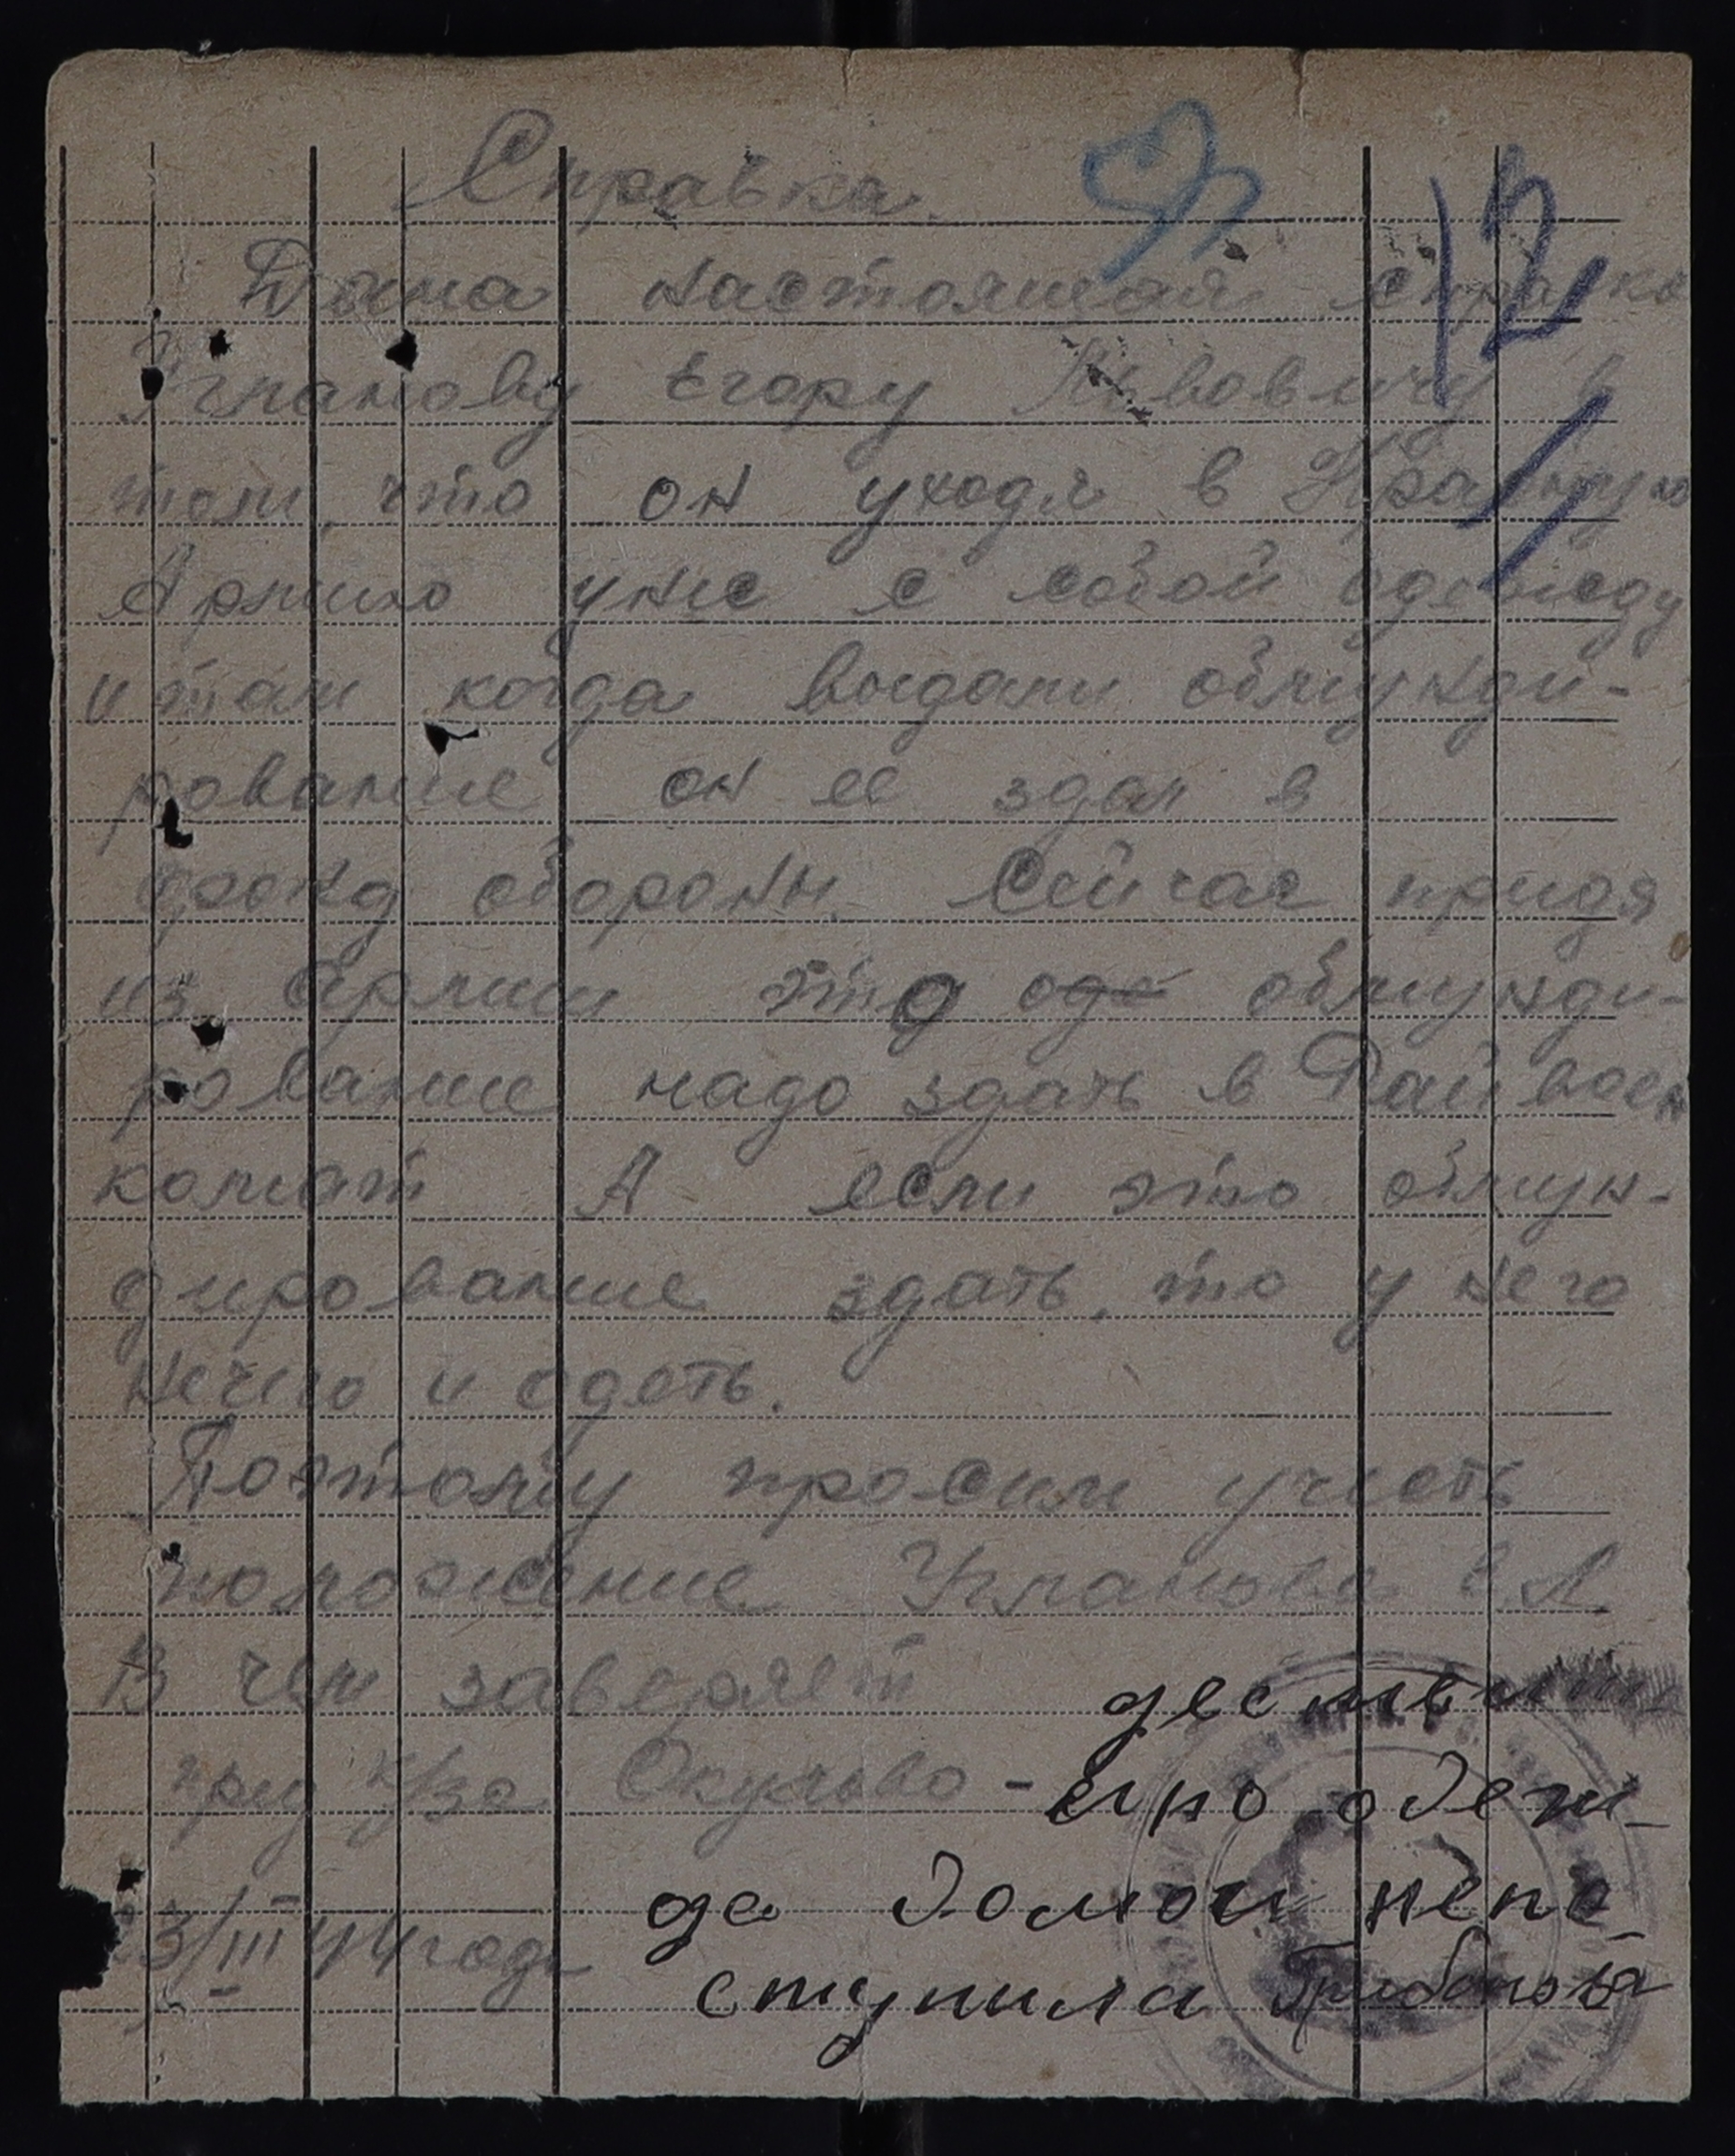 Справка.
12
Дана настоящая справка
Угланову Егору Львовичу в
том, что он уходя в Красную
Армию унес с собой одежду
и там когда выдали обмунди-
рование он ее здал в
фонд обороны. Сейчас придя
из армии это оде обмунди-
рование надо здать в Райвоен
комат А если это обмун-
дирование здать, то у него
нечего и одеть.
Поэтому просим учесть
положение Угланова Е.Л
В чем заверяет
пред к/за Окулово -
23/III 44 год
действит
ельно одеж-
да домои непо-
ступила